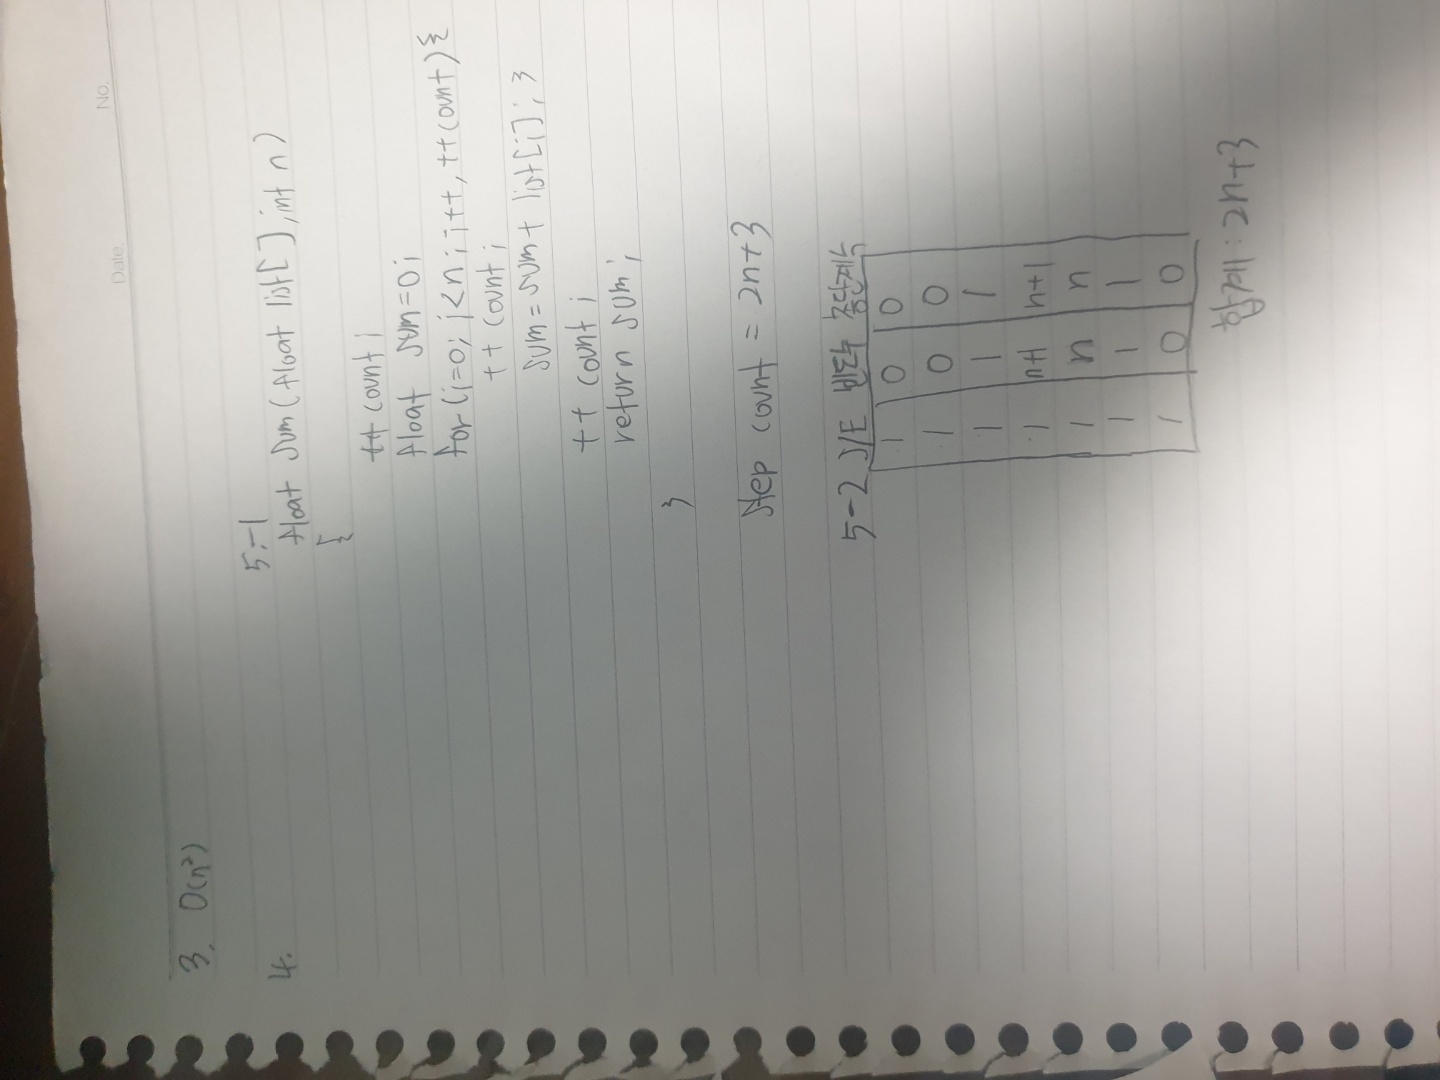 No.
Date.
3. O(n²)
4.
5.-1
float sum(float list[], int n)
{
++ count;
float sum=0;
for(i=0; i<n; i++, ++count){
++ count;
sum = sum + list[i]; }
++ count;
return sum;
}
step count = 2n+3
5-2 s/E 빈도수 총단계수
1 0 0
1 0 0
1 1 1
1 n+1 n+1
1 n n
1 1 1
1 0 0
합계: 2n+3